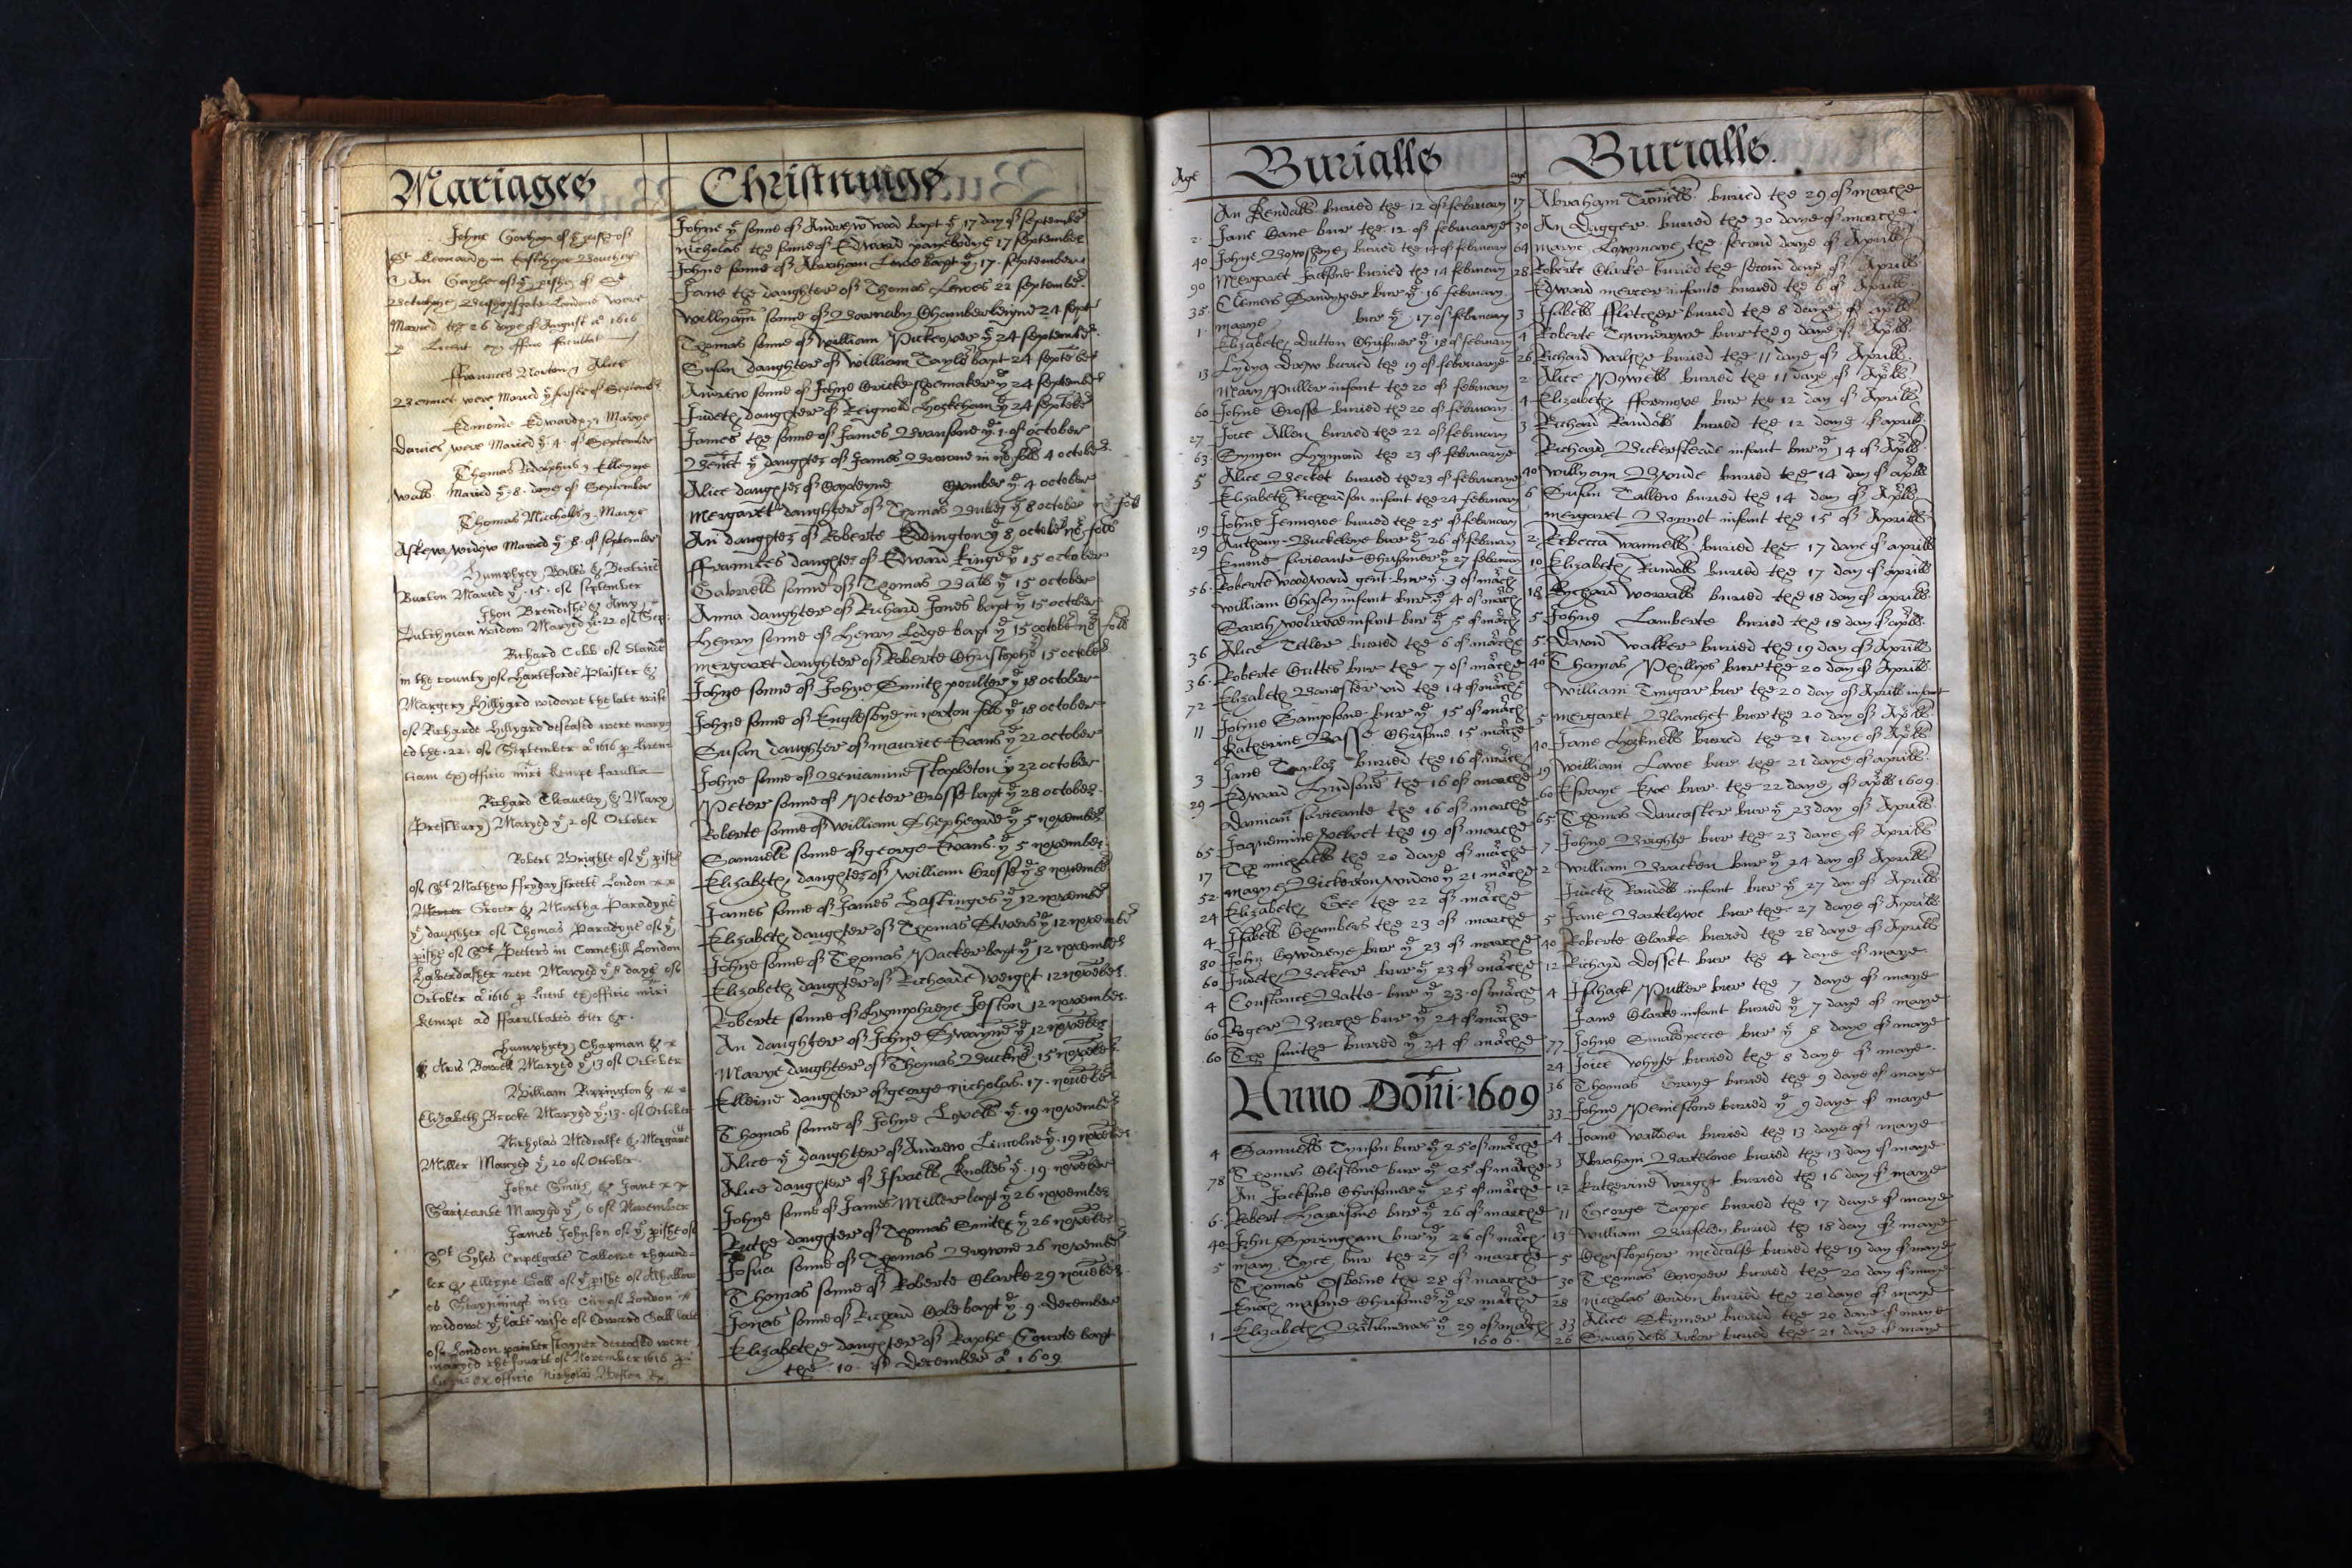 Mariages
Johne
St Leonards in
& An Gayle of ye pishe of St
Buttolphe Bushopsgate London were
Maried the 26 daye of August ao 1616
Frauncis Norton & Alice
Bennet were Maried ye firste of September
Edmonde Edwards & Marye
Davies were Maried ye 4 of September
Thomas Rodolphus & Elleyne
Walls Maried ye 8 daye of September
Thomas Nuttholls & Marye
Askew widow Maried ye 8 of September
Humphrey Balls & Beatrice
Burton Maried ye 15 of September
Jhon Brendishe & Amy
Dutchman widow Maryed ye 22 of Sep
Richard Cobb of Stande
in the county of Plaister &
Margery Hillyard widowe the late wife
of Richarde Hillyard deseased were mary
ed the 22 of September ao 1616 p licen
tiam ex officio mri Kempe faculta
Richard Cleaveley & Mary
Prestbury Maryed ye 2 of October
Robert Brighte of ye pishe
of St Mathew Fryday streete London
Grocer & Martha Paradyne
ye daughter of Thomas Paradyne of ye
pishe of St Petters in Cornehill London
Haberdasher were Maryed ye 8 daye of
October ao 1616 p licent ex officio mri
Kempe ad facultates &c.
Humphrey Chapman &
Avis Bowell Maryed ye 13 of October
William Rippington &
Elizabeth Brooke Maryed ye 13 of October
Nicholas Medcalfe & Margaret
Miller Maryed ye 20 of October
Johne Smith & Jane
Sariante Maryed ye 6 of November
James Johnson of ye pishe of
St Gyles Cripelgate Tallowe chaund=
ler & Elleyne Ball of ye pishe of Alhallow
es Stayninge in the City of London
widowe ye late wife of Edward Ball late
of London painter stayner deceased were
maryed the fourth of November 1616 p
licent ex officio Nicholas Weston
Christnings
Johne ye sonne of Andrew wood bapt ye 17 day of September
Nicholas the sonne of Edward 17 September
Johne sonne of Abraham Lowe bapt ye 17 September
Jane the daughter of Thomas Lewes 22 September
Willyam sonne of Barnaby Chamberleyne 24 Sept
Thomas sonne of William Pickover ye 24 September
Susan daughter of William Taylor bapt 24 September
Andrew sonne of Johne shoemaker ye 24 September
Judeth daughter of Reignold ye 24 September
James the sonne of James Bransone ye 1 of October
Bennet ye daughter of James Browne 4 October
Alice daughter of ye 4 October
Mergaret daughter of Thomas ye 8 October
An daughter of Roberte Eddington ye 8 October
Fraunces daughter of Edward Kinge ye 15 October
Gabriell sonne of Thomas Bals ye 15 October
Anna daughter of Richard Jones bapt ye 15 October
Henry sonne of Henry Lodge bapt ye 15 October
Mergaret daughter of Roberte Christopher 15 October
Johne sonne of Johne Smith poulter ye 18 October
Johne sonne of in norton ye 18 October
Susan daughter of Maurice Evans ye 22 October
Johne sonne of Beniamine Stapleton ye 22 October
Peter sonne of Peter Crosse bapt ye 28 October
Roberte sonne of William Shepheard ye 5 November
Samuell sonne of George Evans ye 5 November
Elizabeth daughter of William Crosse ye 8 November
James sonne of James Hastinges ye 12 November
Elizabeth daughter of Thomas ye 12 November
Johne sonne of Thomas Packer bapt ye 12 November
Elizabeth daughter of Richarde Weight 12 November
Roberte sonne of Humphreye Jeston 12 November
An daughter of Johne Swayne ye 12 November
Marye daughter of Thomas Buckne 15 November
Elleine daughter of George Nicholas 17 November
Thomas sonne of Johne Lovell ye 19 November
Alice ye daughter of Andrew Lincolne ye 19 November
Alice daughter of Israell Knolles ye 19 November
Johne sonne of James Miller bapt ye 26 November
Ruthe daughter of Thomas Smithe ye 26 November
Josua sonne of Thomas Browne 26 November
Thomas sonne of Roberte Clarke 29 November
Jonas sonne of Richard Cole bapt ye 9 December
Elizabethe daughter of Raphe bapt
the 10 of December ao 1609
Age Burialls
An Kendall buried the 12 of february
2 Jane Cane bur the 12 of februarye
40 Johne buried the 14 of february
90 Mergaret Jacksone buried the 14 february
35 Clemens bur ye 16 february
1 Marye bur ye 17 of february
Elizabeth Dutton Chrisomer ye 18 of february
13 Lydya Drew buried the 19 of februarye
Mary Puller infant the 20 of february
60 Johne Crosse buried the 20 of february
27 Joice Allen buried the 22 of february
63 Symon Hymond the 23 of februarye
5 Alice Becket buried the 23 of februarye
Elizabeth Richardson infant the 24 february
19 Johne Jennowe buried the 25 of february
29 Anthony Buckeleye bur ye 26 of february
Emone Chrisomer ye 27 february
56 Roberte Woodward gent bur ye 3 of march
William Chasey infant bur ye 4 of march
Sarah infant bur ye 5 of march
36 Alice Tetler buried the 6 of marche
36 Roberte Cuttes bur the 7 of marche
72 Elizabeth Banester vid the 14 of marche
11 Johne Sampsone bur ye 15 of march
Katherine Basse Chrisome 15 marche
3 Jane Taylor buried the 16 of march
29 Edward Hudsone the 16 of marche
Damian the 16 of marche
65 Jaquemine the 19 of marche
17 Tho michaell the 20 daye of marche
52 Marye Bickerton widow ye 21 marche
24 Elizabeth Gee the 22 of marche
4 Isabell Chambers the 23 of marche
80 John bur ye 23 of marche
60 Judeth Becker bur ye 23 of marche
4 Constance Batte bur ye 23 of marche
60 Roger Burche bur ye 24 of marche
60 Tho Smithe burred ye 24 of marche
Anno Domi 1609
4 Samuell Tynson bur ye 25 of marche
78 Thomas bur ye 25 of marche
An Jacksone Chrisomer ye 25 of marche
6 Robert Harrisone bur ye 26 of marche
40 John Springham bur ye 26 of march
5 Mary bur the 27 of marche
Thomas Osborne the 28 of marche
Enoch Chrisomer ye 28 marche
1 Elizabeth ye 29 of march
1606
age Burialls
17 Abraham buried the 29 of marche
30 An Dagger buried the 30 daye of marche
64 Marye the second daye of Aprill
28 Roberte Clarke buried the second daye of Aprill
Edward mercer infante buried the 6 of Aprill
3 Isabell Fletcher buried the 8 daye of Aprill
4 Roberte bur the 9 daye of Aprill
26 Richard Walker buried the 11 daye of Aprill
2 Alice Powell buried the 11 daye of Aprill
4 Elizabeth bur the 12 day of Aprill
3 Richard Randoll buried the 12 daye of aprill
Richard Bickerstead infant bur ye 14 of Aprill
40 Willyam buried the 14 day of aprill
6 Susan Tallow buried the 14 day of Aprill
Mergaret Bonnet infant the 15 of Aprill
2 Rebecca Wannell buried the 17 daye of aprill
10 Elizabeth Randoll buried the 17 day of aprill
18 Rychard Worrall buried the 18 day of aprill
5 Johne Lamberte buried the 18 day of aprill
5 David Walker buried the 19 day of Aprill
40 Thomas Phillips bur the 20 day of Aprill
William bur the 20 day of Aprill infant
5 Mergaret Blanchet bur the 20 day of Aprill
40 Jane buried the 21 daye of Aprill
19 William Lowe bur the 21 daye of aprill
60 bur the 22 daye of aprill 1609
65 Thomas Dancaster bur ye 23 day of Aprill
7 Johne Brighte bur the 23 daye of Aprill
2 William Bracken bur ye 24 day of Aprill
Judeth Randoll infant bur ye 27 day of Aprill
5 Jane Bartelowe bur the 27 daye of Aprill
40 Roberte Clarke buried the 28 daye of Aprill
12 Richard Dosset bur the 4 daye of maye
4 Ischack Puller bur the 7 daye of maye
Jane Clarke infant buried ye 7 daye of maye
77 Johne Smalpeece bur ye 8 daye of maye
24 Joice Whyte buried the 8 daye of maye
36 Thomas Graye buried the 9 daye of maye
33 Johne Penistone buried ye 9 daye of maye
4 Joane Wallden buried the 13 daye of maye
3 Abraham Bartelowe buried the 13 day of maye
12 Katherine Wright buried the 16 day of maye
11 George Tappe buried the 17 daye of maye
13 William buried the 18 day of maye
5 Christopher medcalfe buried the 19 day of maye
30 Thomas Cowper buried the 20 day of maye
28 Nicholas Gordon buried the 20 daye of maye
33 Alice Skinner buried the 20 daye of maye
26 Sarah buried the 21 daye of maye